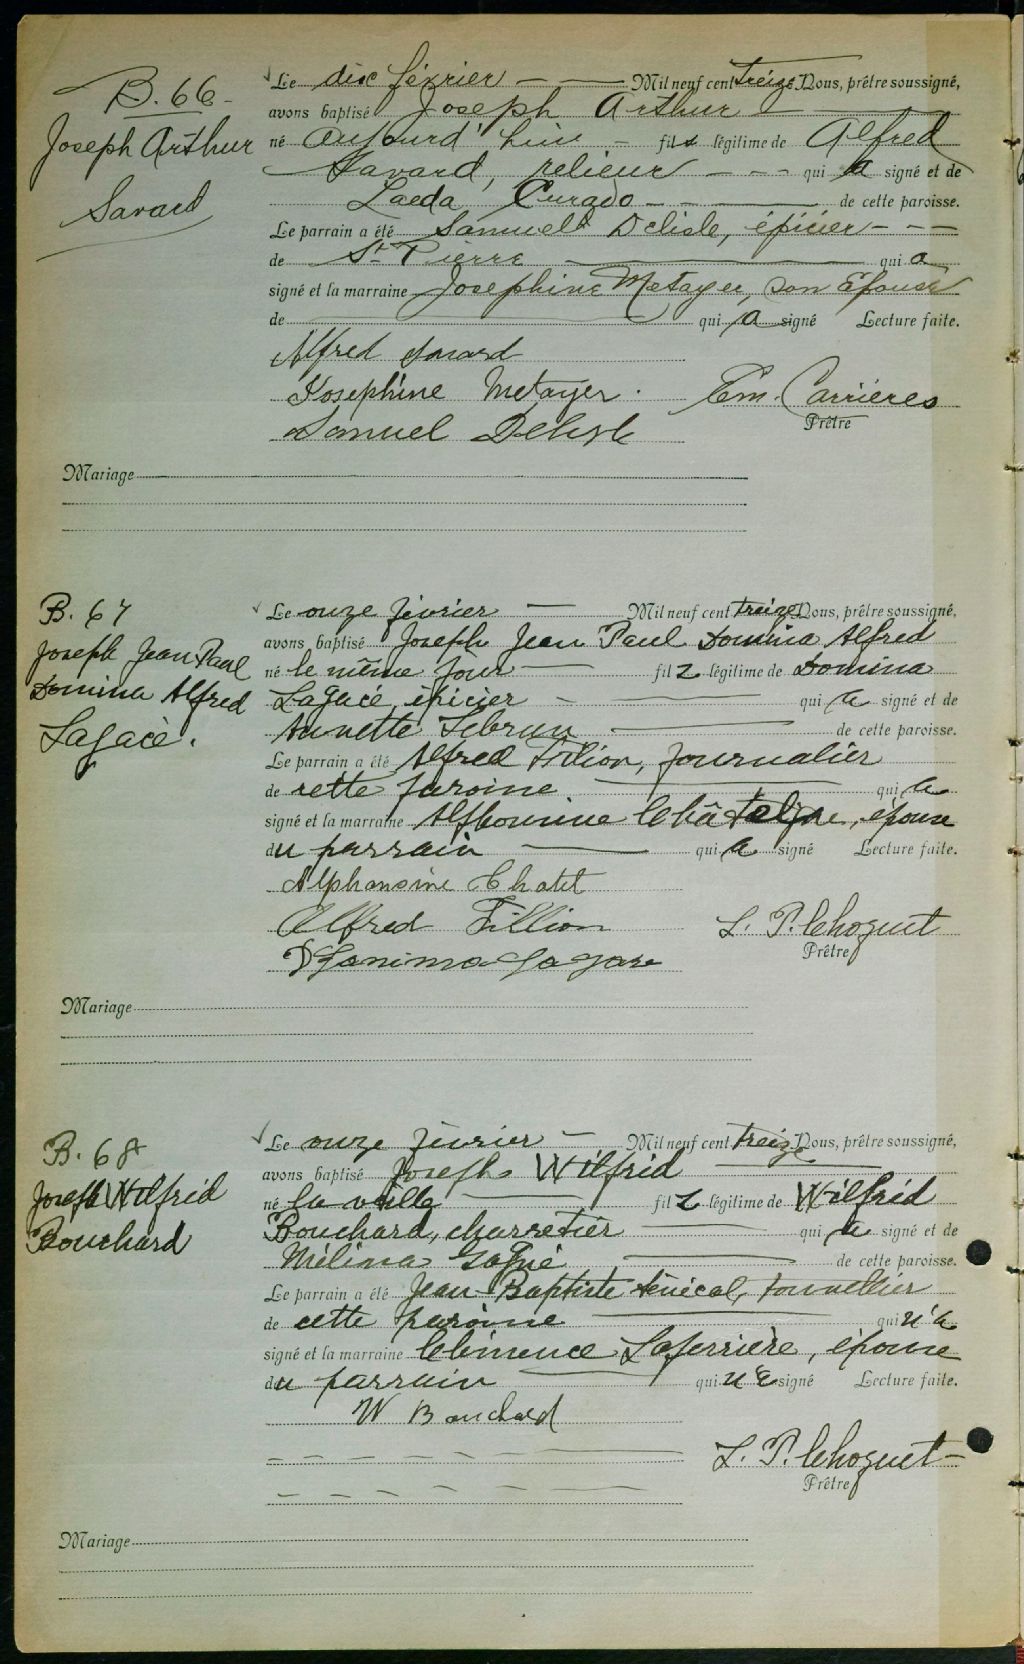 B. 66
Joseph Arthur
Savard
Le dix février Mil neuf cent treize Nous, prêtre soussigné,
avons baptisé Joseph Arthur
né aujourd'hui fils légitime de Alfred
Savard, relieur qui a signé et de
Laeda Curado de cette paroisse.
Le parrain a été Samuel Delisle, épicier
de St Pierre qui a
signé et la marraine Josephine Metayer, son épouse
de qui a signé Lecture faite.
Alfred Savard
Josephine Metayer. Em. Carrières
Samuel Delisle Prêtre
Mariage
B. 67
Joseph Jean Paul
Domina Alfred
Lagacé.
Le onze février Mil neuf cent treize Nous, prêtre soussigné,
avons baptisé Joseph Jean Paul Domina Alfred
né le même jour fils légitime de Domina
Lagacé, épicier qui a signé et de
Annette Lebrun de cette paroisse.
Le parrain a été Alfred Filion, journalier
de cette paroisse qui a
signé et la marraine Alphonsine Châtelle, épouse
du parrain qui a signé Lecture faite.
Alphonsine Chatel
Alfred Fillion L. P. Choquet
Prêtre
Mariage
B. 68
Joseph Wilfrid
Bouchard
Le onze février Mil neuf cent treize Nous, prêtre soussigné,
avons baptisé Joseph Wilfrid
né la veille fils légitime de Wilfrid
Bouchard, charretier qui a signé et de
Mélina Gagné de cette paroisse.
Le parrain a été Jean-Baptiste Sénécal, tonnellier
de cette paroisse qui n'a
signé et la marraine Clémence Laferrière, épouse
du parrain qui n'a signé Lecture faite.
W Bouchard
L. P. Choquet
Prêtre
Mariage